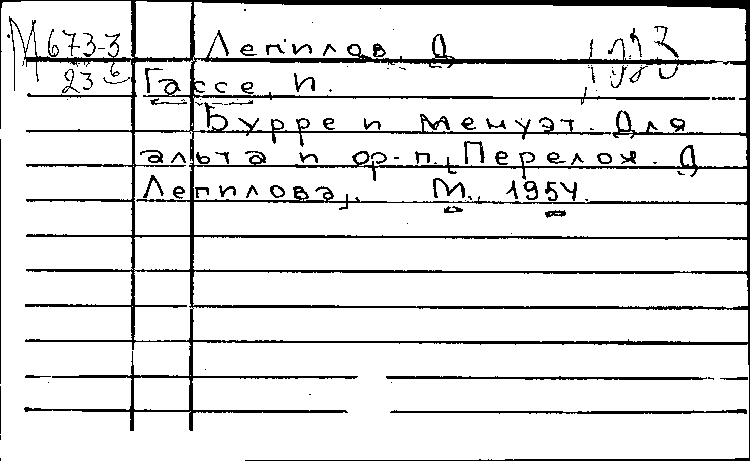 М 673-3 Лепилов, Д
23 6 Гассе, И.
Бурре и менуэт. Для
альта и ф-п., Перелож. Д
Лепилова,. М., 1954.